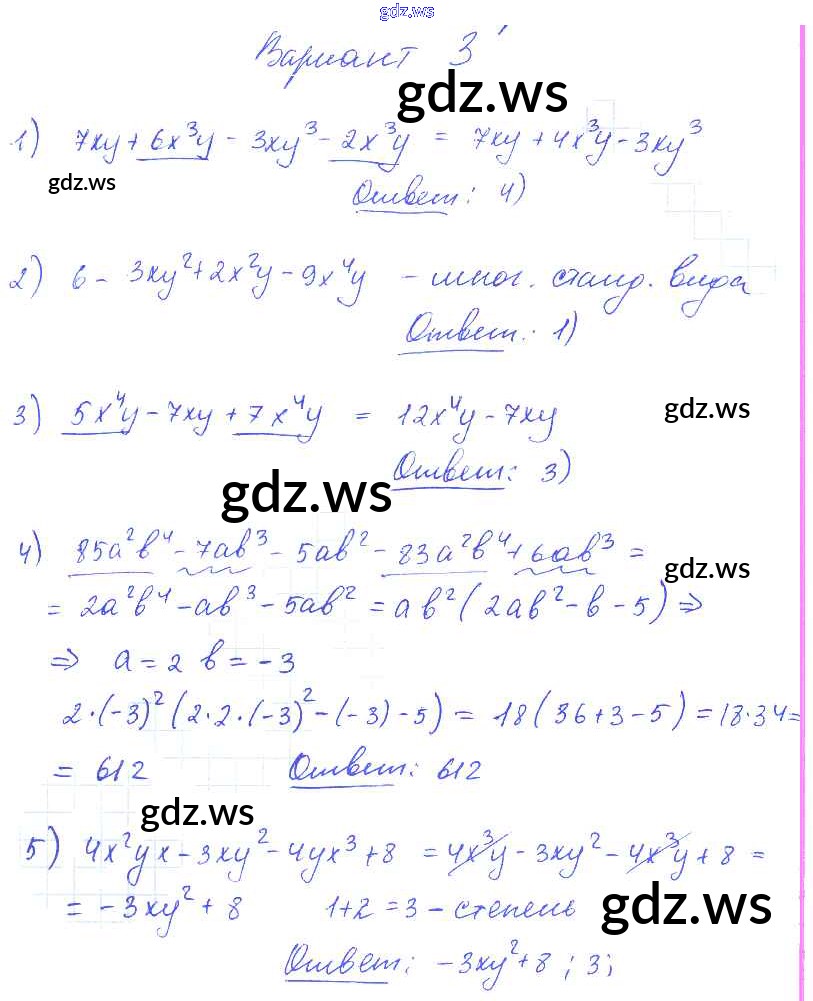 gdz.ws
Вариант 3
gdz.ws
1) 7xy + 6x³y - 3xy³ - 2x³y = 7xy + 4x³y - 3xy³
gdz.ws
Ответ: 4)
2) 6 - 3xy² + 2x²y - 9x⁴y - мног. станд. вида
Ответ: 1)
3) 5x⁴y - 7xy + 7x⁴y = 12x⁴y - 7xy
gdz.ws
Ответ: 3)
gdz.ws
4) 85a²b⁴ - 7ab³ - 5ab² - 83a²b⁴ + 6ab³ =
gdz.ws
= 2a²b⁴ - ab³ - 5ab² = ab²(2ab² - b - 5) ⇒
⇒ a = 2 b = -3
2·(-3)²(2·2·(-3)² - (-3) - 5) = 18(36 + 3 - 5) = 18·34 =
= 612 Ответ: 612
gdz.ws
5) 4x²yx - 3xy² - 4yx³ + 8 = 4x³y - 3xy² - 4x³y + 8 =
= -3xy² + 8 1+2=3 - степень
gdz.ws
Ответ: -3xy² + 8 ; 3;